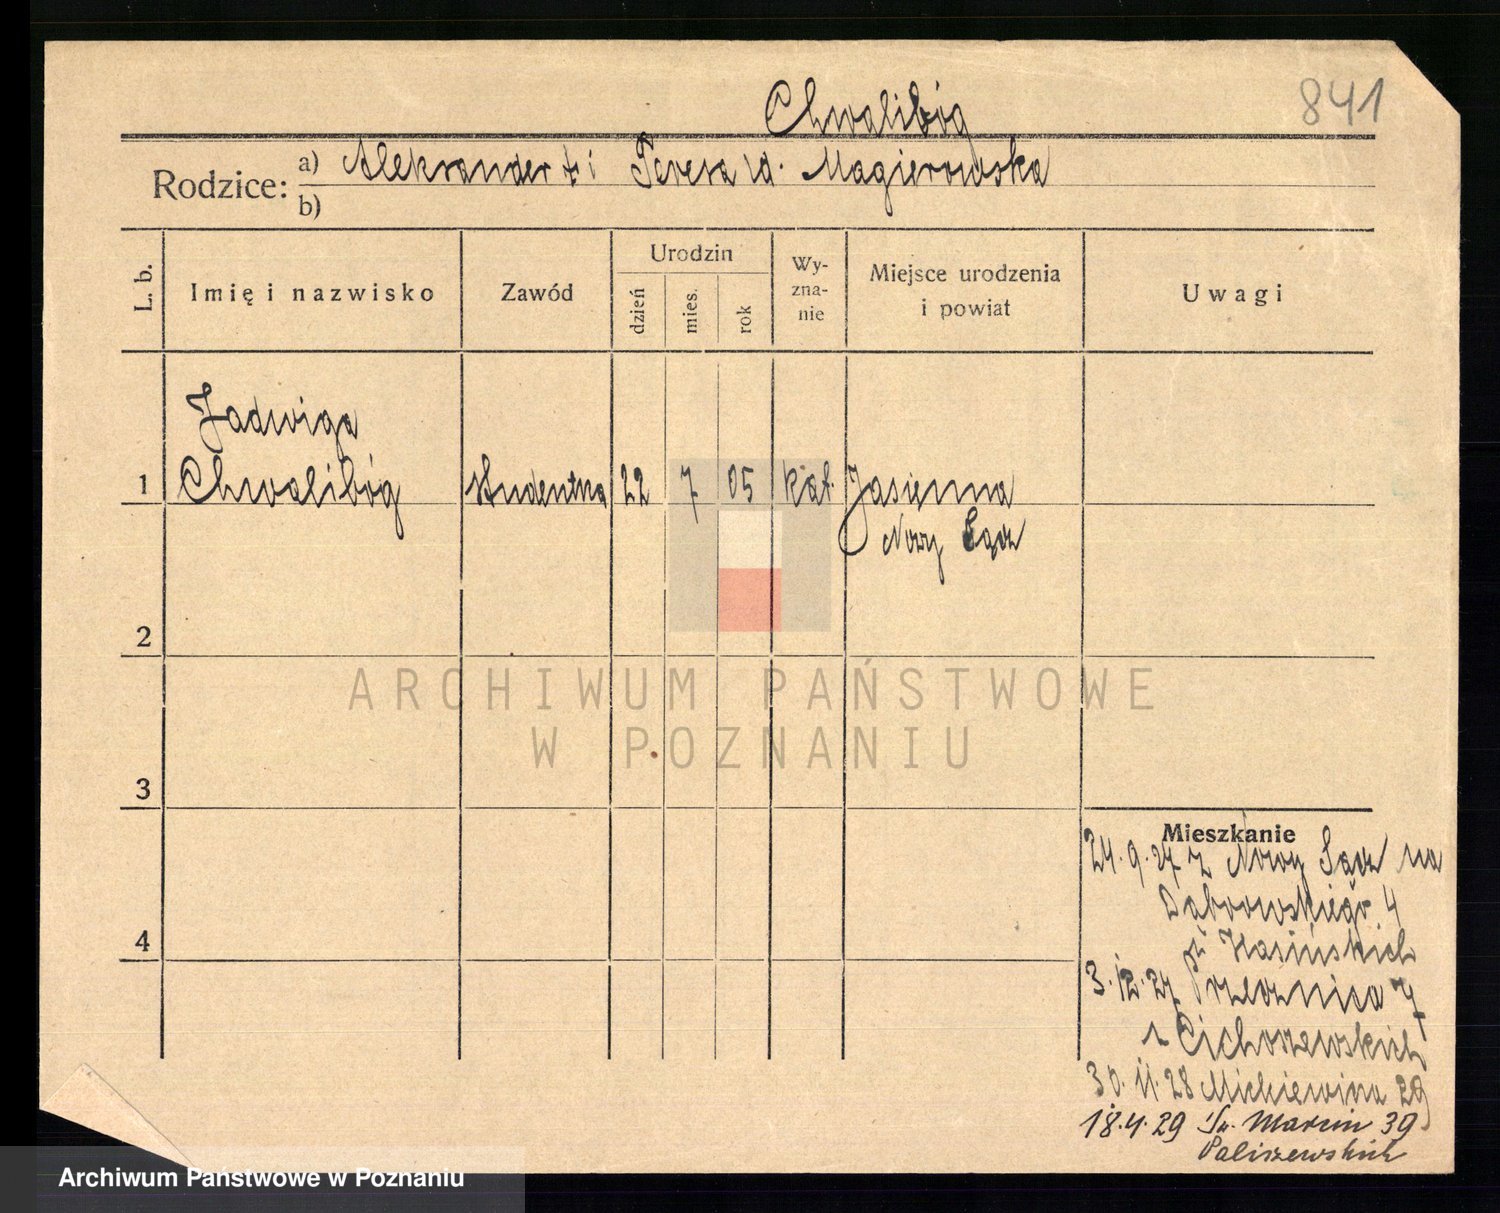 841
Chwalibóg
Rodzice: a) Aleksander † i Teresa zd. Magierowska
b)
L. b. Imię i nazwisko Zawód Urodzin dzień mies. rok Wy-zna-nie Miejsce urodzenia i powiat Uwagi
Jadwiga
1 Chwalibóg studentka 22 7 05 kat. Jasienna
Nowy Sącz
2
ARCHIWUM PAŃSTWOWE
W POZNANIU
3
Mieszkanie
24.9.27 z Nowy Sącz na
Dąbrowskiego 4
4
3.12.27 Przecznica 7
Cichoszewskich
30.11.28 Mickiewicza 29
18.4.29 Św. Marcin 39
Paliszewskich
Archiwum Państwowe w Poznaniu